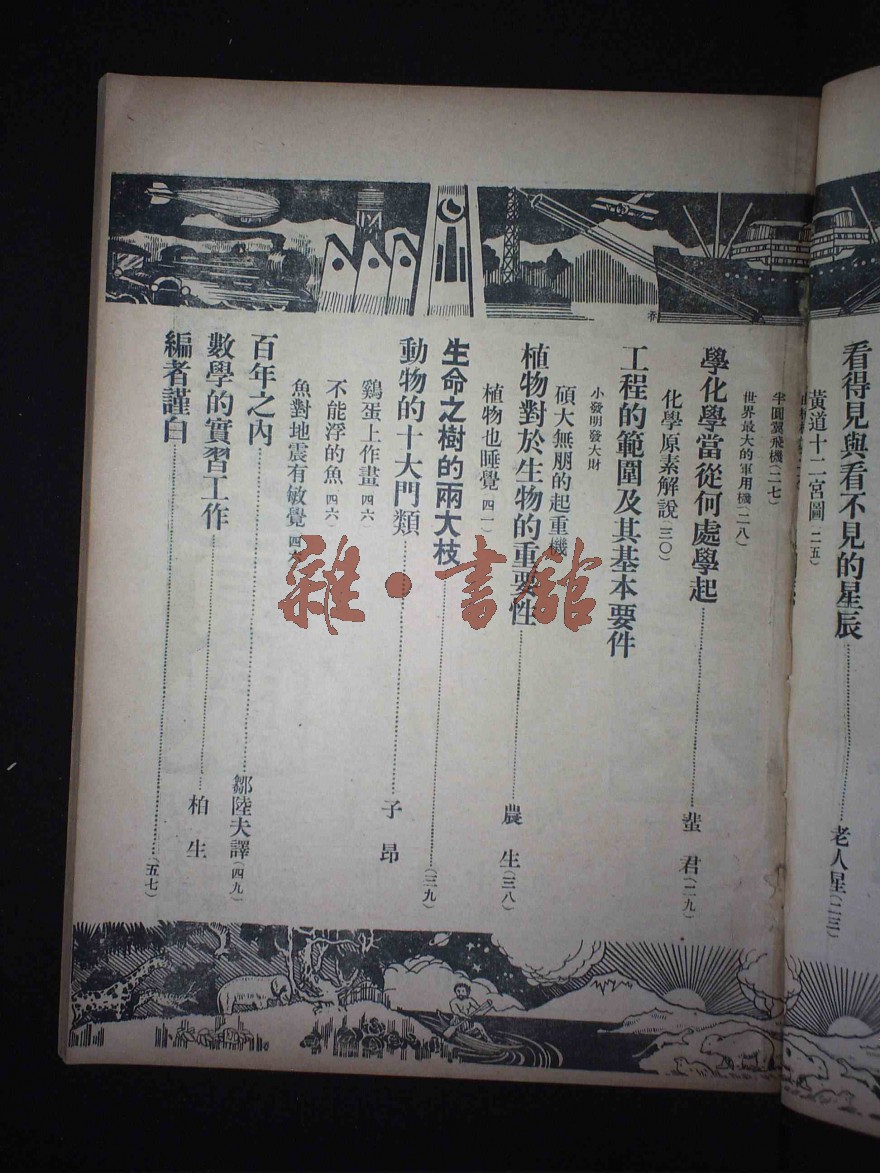 看得見與看不見的星辰 老人星(二三)
黃道十二宮圖(二五)
半圓翼飛機(二七)
世界最大的軍用機(二八)
學化學當從何處學起 蜚 君(二九)
化學原素解說(三〇)
工程的範圍及其基本要件
小發明發大財
碩大無朋的起重機
植物對於生物的重要性 農 生(三八)
植物也睡覺 四一)
生命之樹的兩大枝 (三九)
動物的十大門類 子 昂
鷄蛋上作畫 四六)
不能浮的魚 四六)
魚對地震有敏覺
百年之內 鄒陸夫譯(四九)
數學的實習工作 柏 生
編者謹白 (五七)
雜·書館